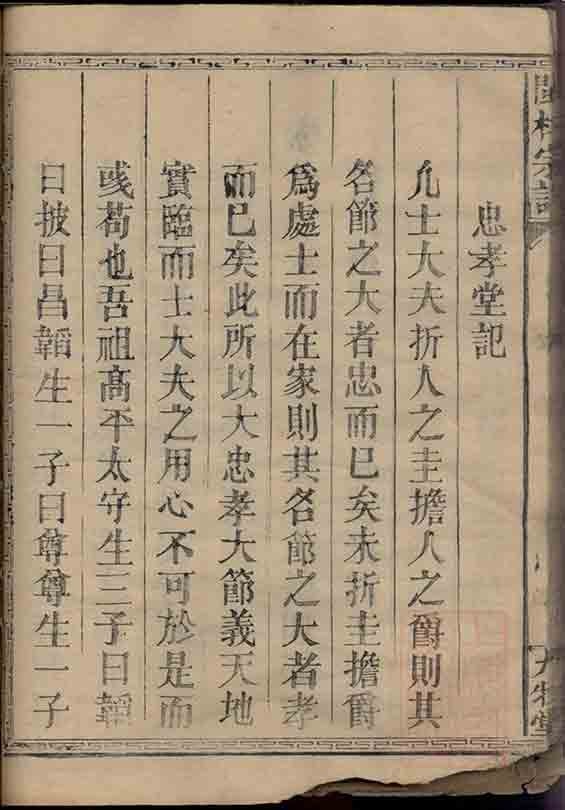 宗譜
忠孝堂記
凢士大夫折人之圭擔人之爵則其
名節之大者忠而已矣未折圭擔爵
爲處士而在家則其名節之大者孝
而已矣此所以大忠孝大節義天地
實臨而士大夫之用心不可於是而
或苟也吾祖高平太守生三子曰韜
曰披曰昌韜生一子曰尊尊生一子